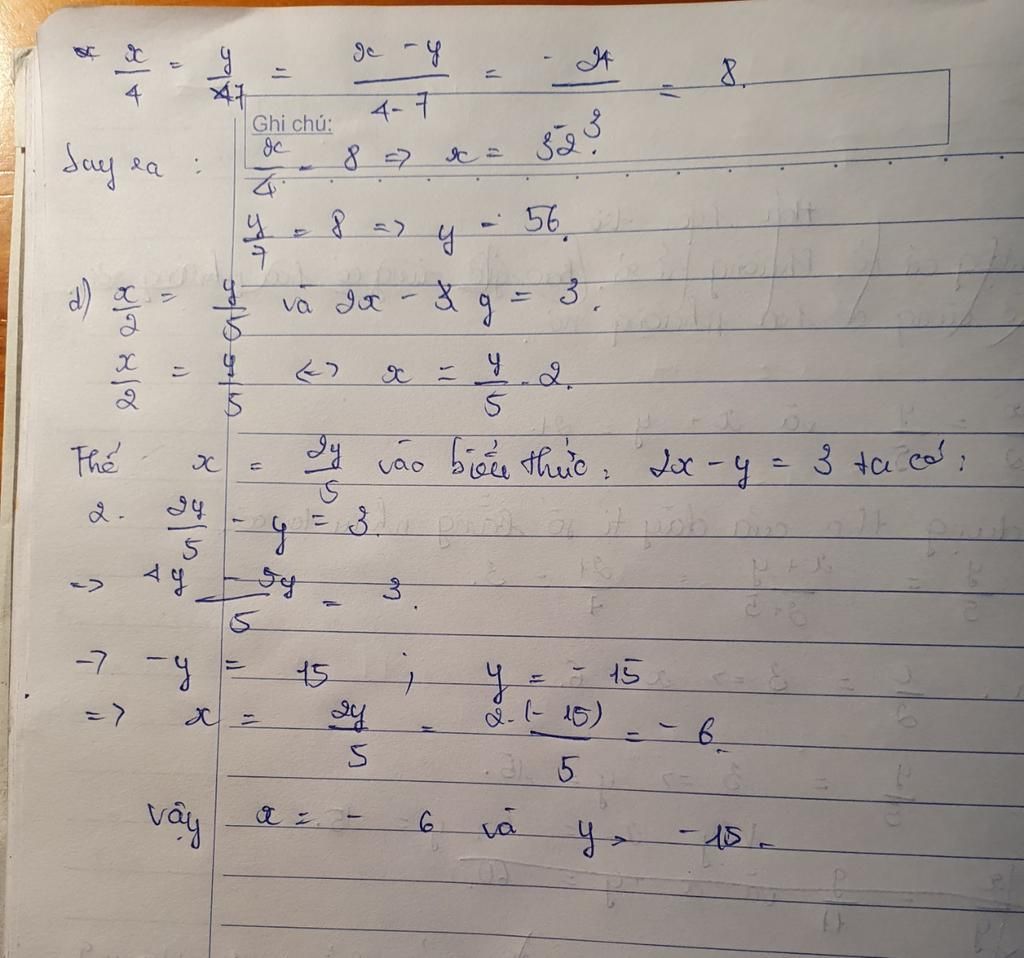 * x/4 = y/7 = x - y / 4 - 7 = - 24 / - 3 = 8.
Ghi chú:
Suy ra : x/4 = 8 => x = 32.
y/7 = 8 => y = 56.
d) x/2 = y/5 và 2x - y = 3.
x/2 = y/5 <=> x = y/5 . 2.
Thế x = 2y/5 vào biểu thức: 2x - y = 3 ta có:
2. 2y/5 - y = 3.
=> 4y - 5y / 5 = 3.
-> -y = 15 ; y = - 15
=> x = 2y/5 = 2.(- 15)/5 = - 6.
Vậy x = - 6 và y = - 15.